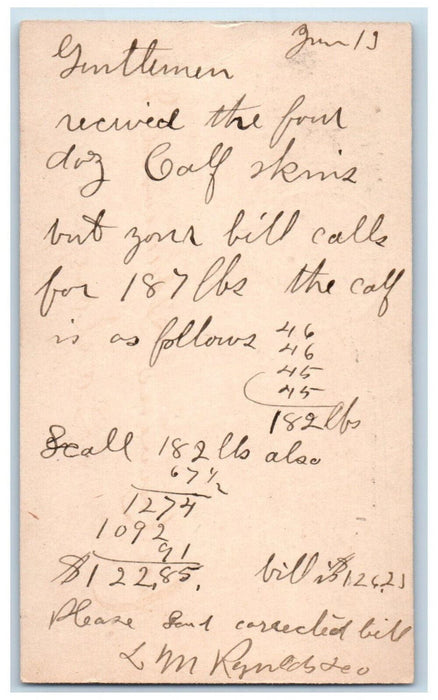 Jun 13
Gentlemen
recived the four
doz Calf skins
but your bill calls
for 187 lbs the calf
is as follows 46
46
45
45
182 lbs
Scall 182 lbs also
67 1/2
1274
1092
91
$122,85,
bill is $126,23
Please send corrected bill
L M Reynolds & Co